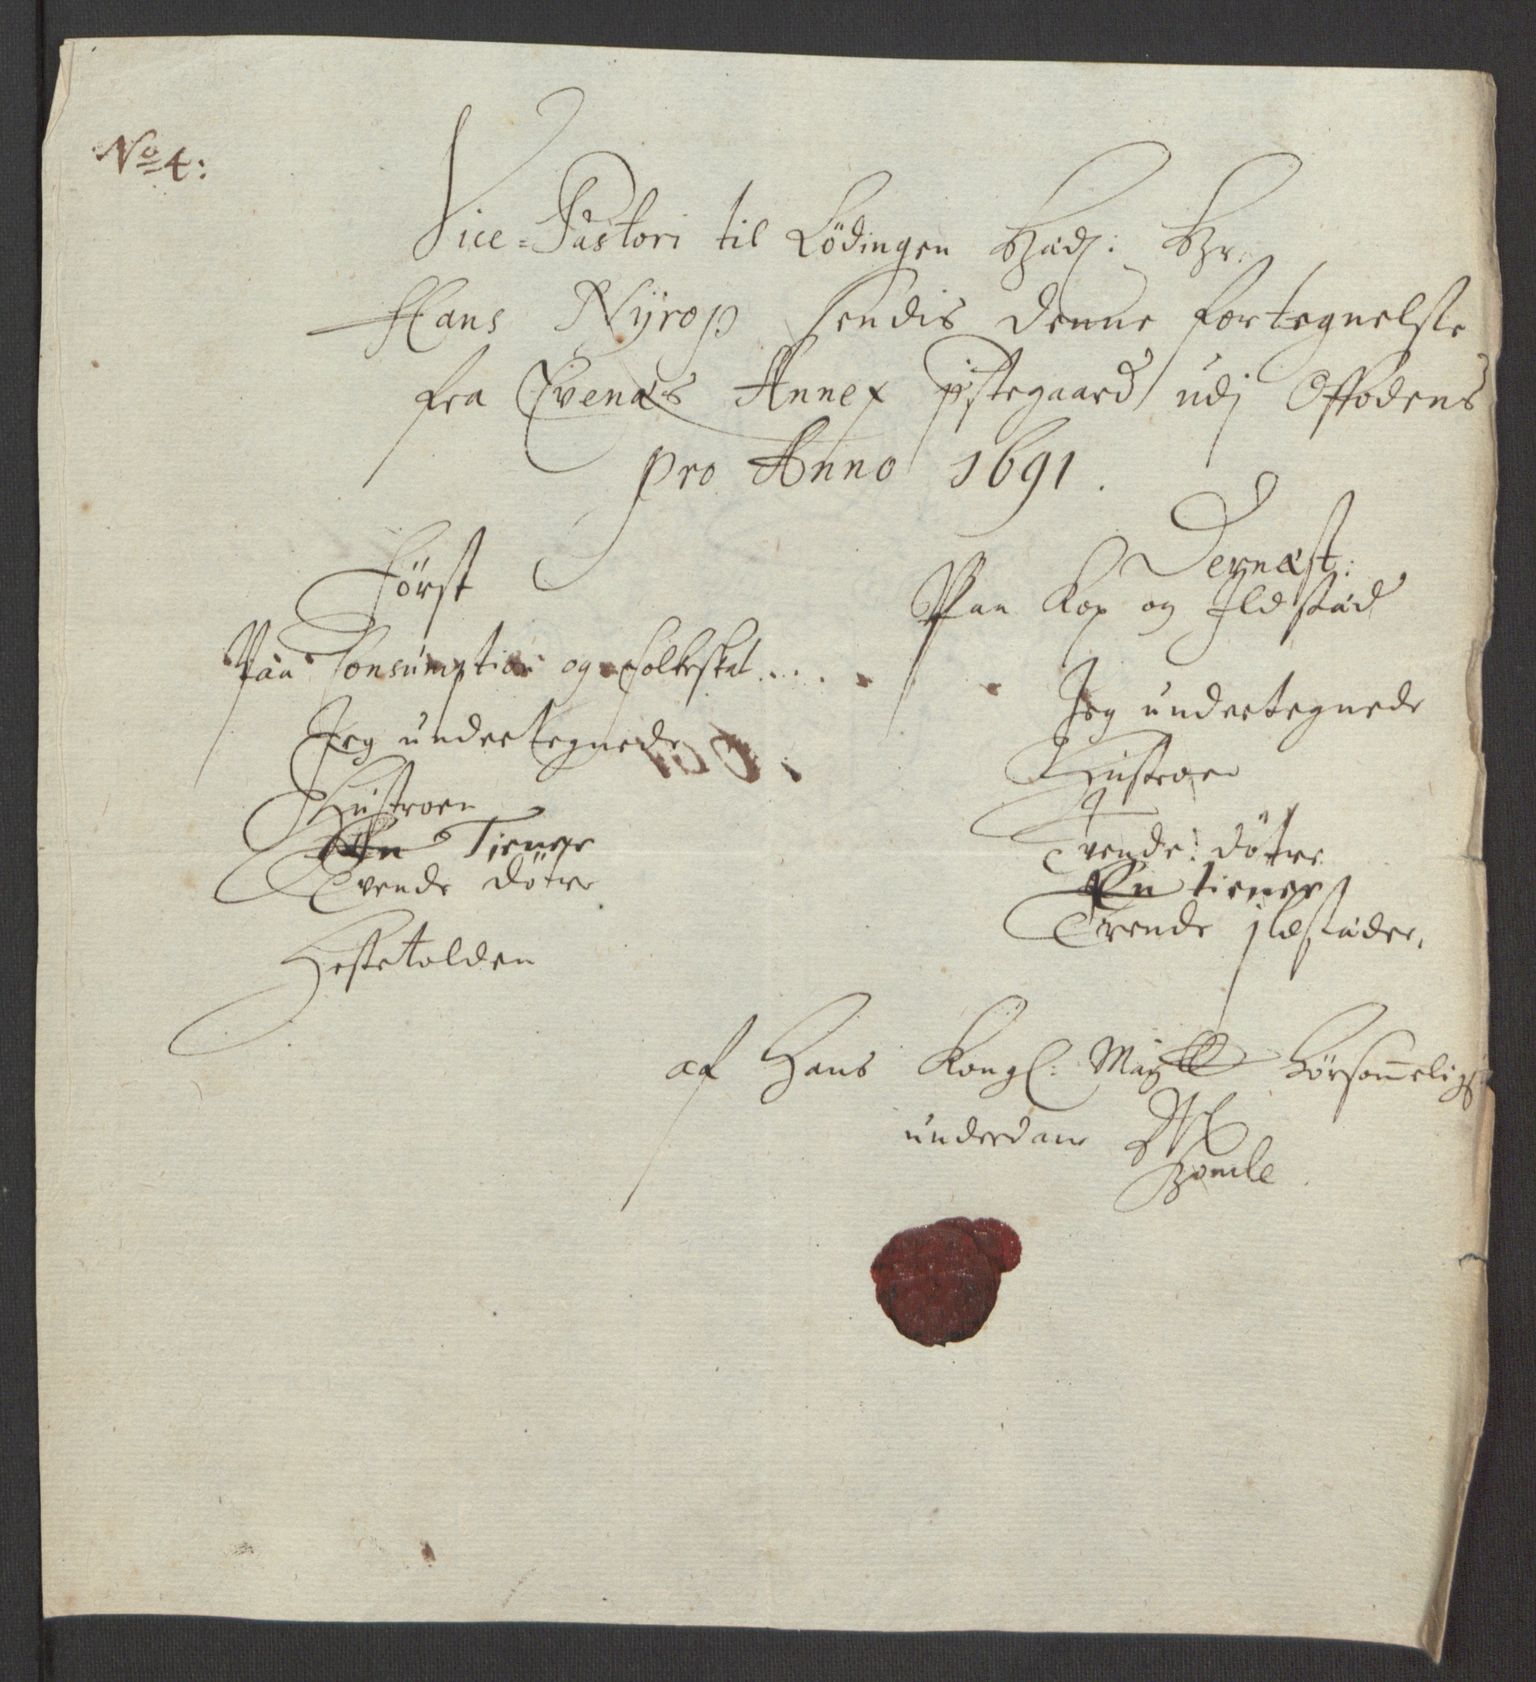 No 4:
Vice-Pastori til Lödingen Hr.
Hans Nÿrop sendis denne fortegnelse
fra Evenæs Annex pstegaard udj Offodens
pro Anno 1691.
Först
Paa Consumption og Folkeskat.....
Jeg undertegnede
Hustroen
En Tiener
Tvende döttre
Hestetolden
Dernæst:
Paa Kop og Ildstäd
Jeg undertegnede
Hustroen
Tvende döttre
En tiener
Trende jldstäder,
af Hans Kongl: Maytt hörsom̄elig
underdane